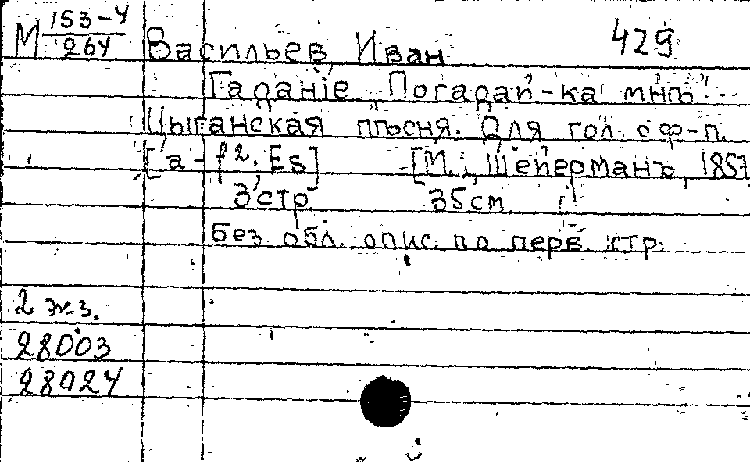 М 153-4/264 Васильев Иван 429
Гаданіе „Погадай-ка мнѣ“
Цыганская пѣсня. Для гол. с ф-п.
[a-f2; Es] [М., Шейерманъ, 1857
3 стр 35 см
Без обл. опис. по перв. стр.
2 экз.
28003
28024